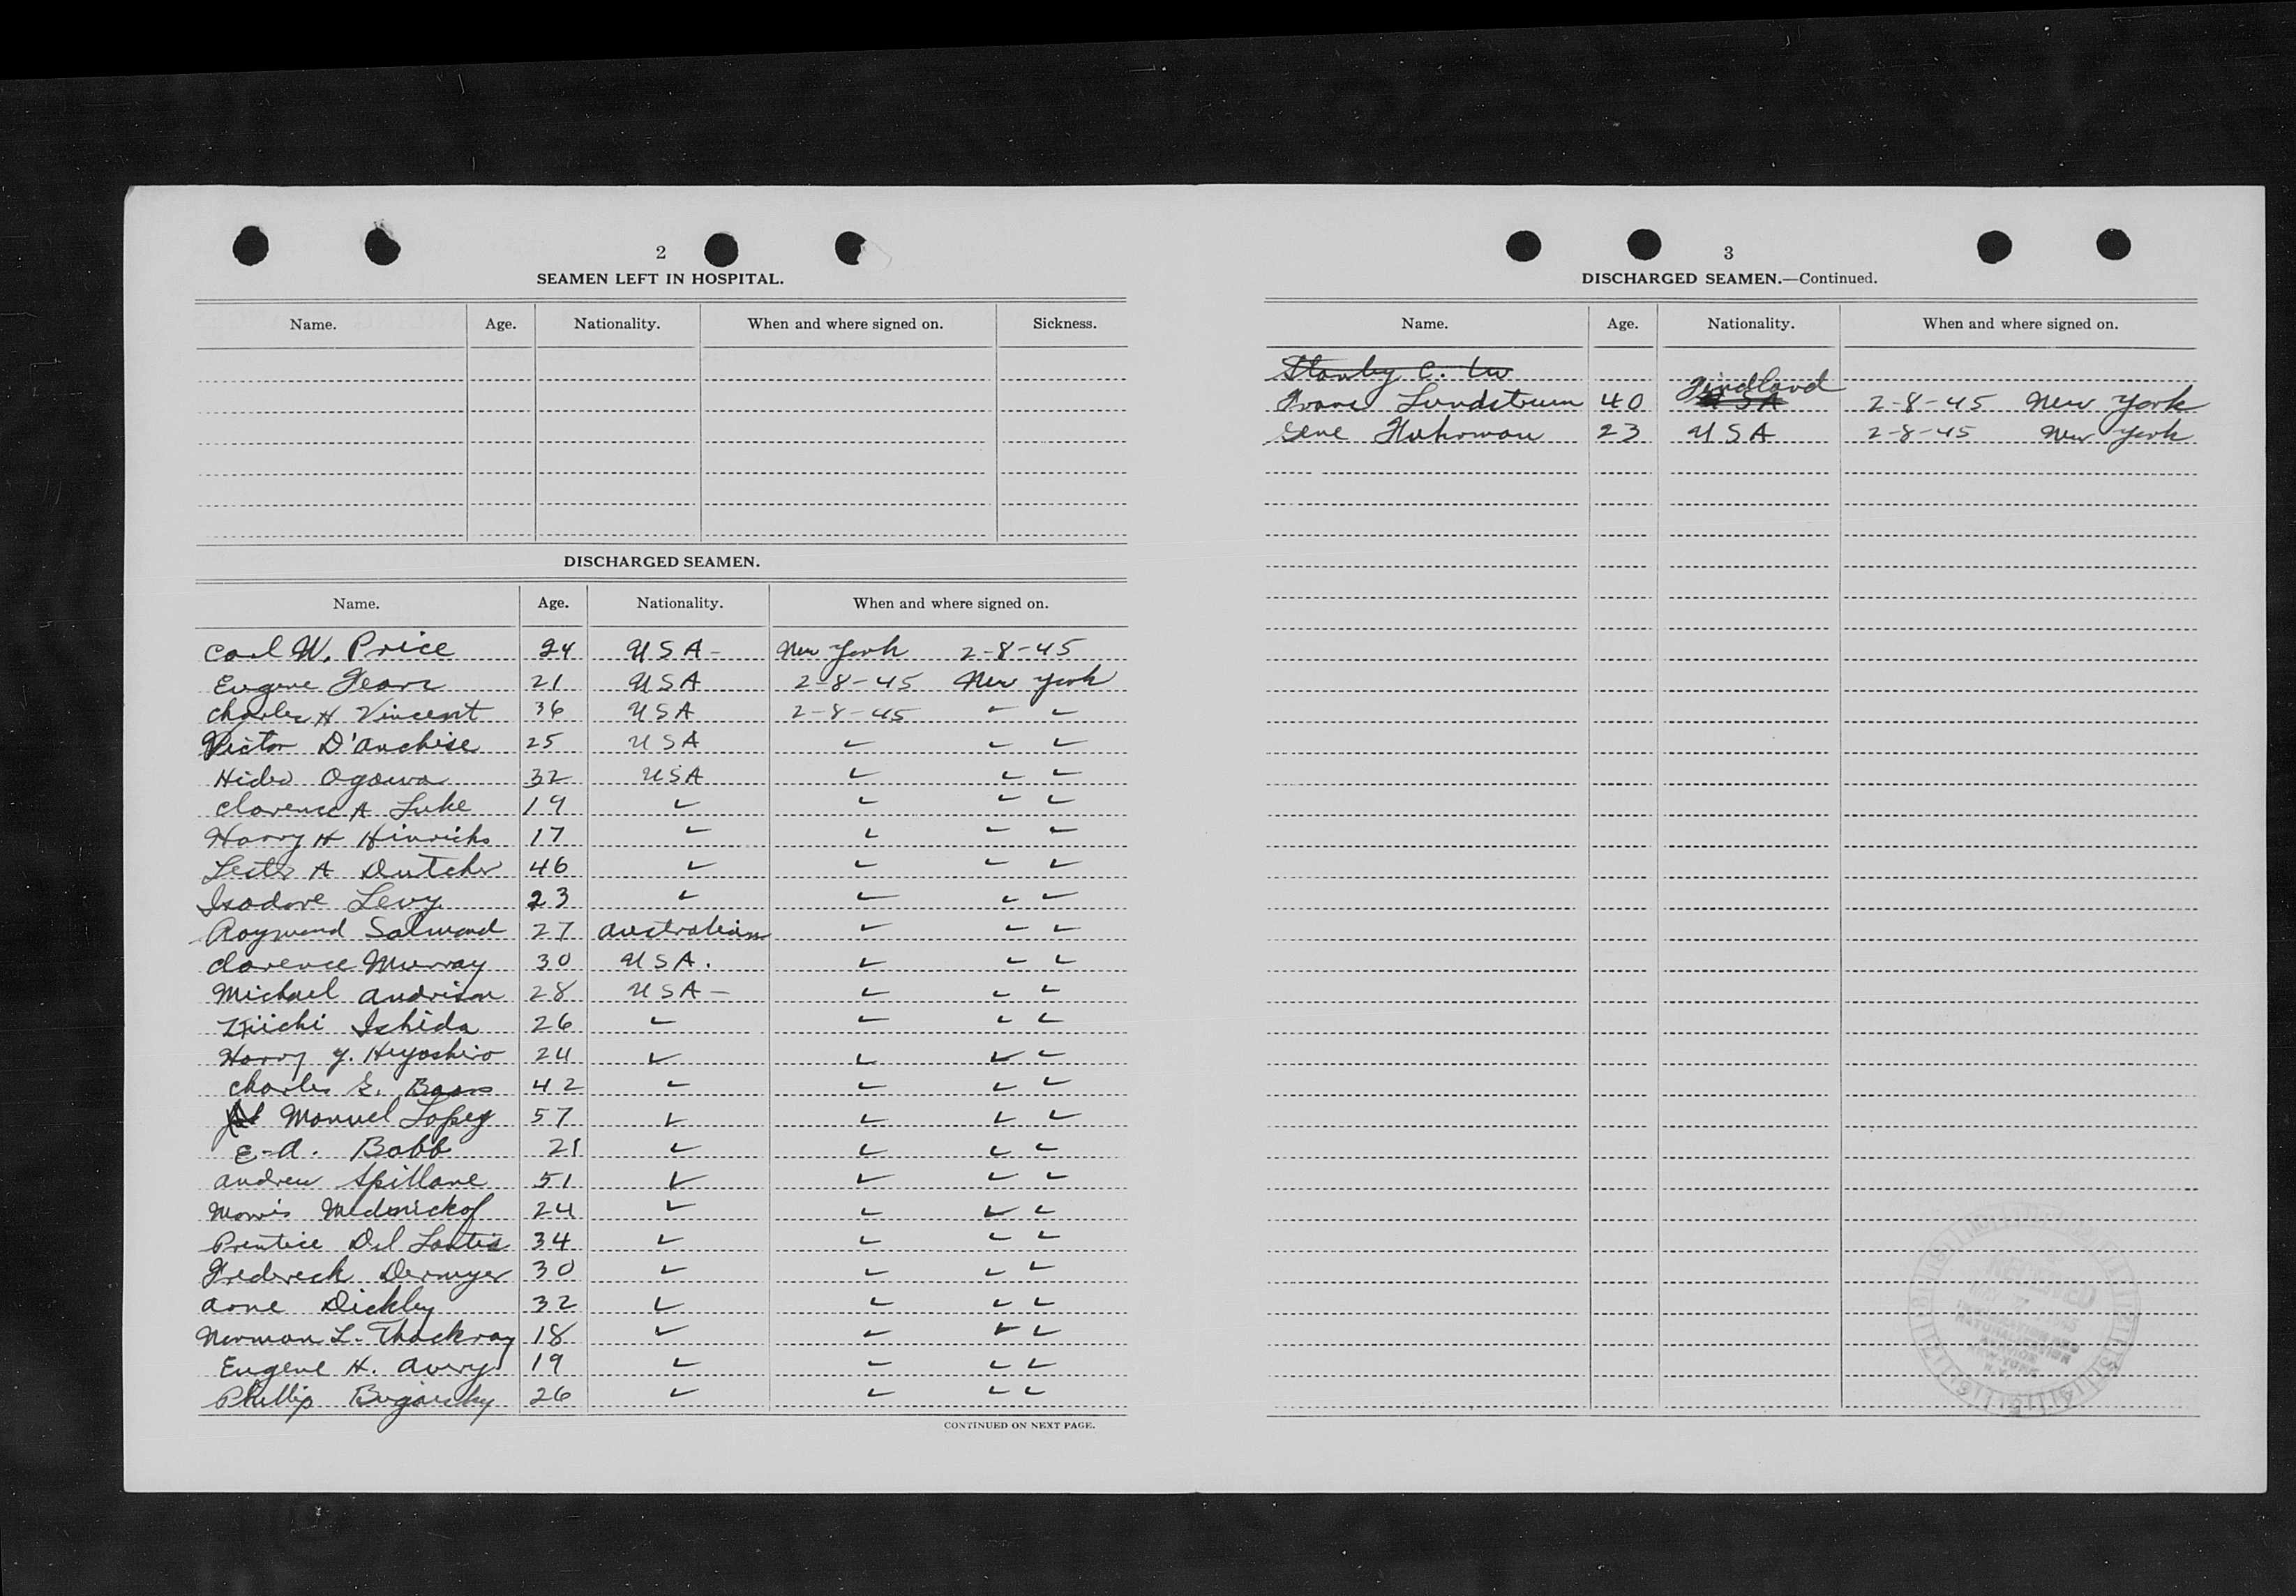 2
SEAMEN LEFT IN HOSPITAL.
Name. Age. Nationality. When and where signed on. Sickness.
DISCHARGED SEAMEN.
Name. Age. Nationality. When and where signed on.
Carl W. Price 24 USA- New York 2-8-45
Eugene 21 USA 2-8-45 New York
Charles H Vincent 36 USA 2-8-45 ✓ ✓
Victor D'Anchise 25 USA ✓ ✓ ✓
Hideo Ogawa 32 USA ✓ ✓ ✓
Clarence A Luke 19 ✓ ✓ ✓ ✓
Harry H Hinrichs 17 ✓ ✓ ✓ ✓
Lester A Dutcher 46 ✓ ✓ ✓ ✓
Isadore Levy 23 ✓ ✓ ✓ ✓
Raymond Salmond 27 Australian ✓ ✓ ✓
Clarence Murray 30 USA. ✓ ✓ ✓
Michael Andrison 28 USA- ✓ ✓ ✓
Ishida 26 ✓ ✓ ✓ ✓
Harry Y. Heyoshiro 24 ✓ ✓ ✓ ✓
Charles E. 42 ✓ ✓ ✓ ✓
Manuel Lopez 57 ✓ ✓ ✓ ✓
E-A. Babb 21 ✓ ✓ ✓ ✓
Andrew Spillane 51 ✓ ✓ ✓ ✓
Morris Mednickof 24 ✓ ✓ ✓ ✓
Prentice Del 34 ✓ ✓ ✓ ✓
Frederick Dermyer 30 ✓ ✓ ✓ ✓
Arne Dickley 32 ✓ ✓ ✓ ✓
Norman L. Thackray 18 ✓ ✓ ✓ ✓
Eugene H. Avery 19 ✓ ✓ ✓ ✓
Phillip Bugarsky 26 ✓ ✓ ✓ ✓
CONTINUED ON NEXT PAGE.
3
DISCHARGED SEAMEN.—Continued.
Name. Age. Nationality. When and where signed on.
Stanley C.
Findland
Frans Lundstrum 40 USA 2-8-45 New York
Gene Fuhrman 23 USA 2-8-45 New York
RECEIVED
MAY
IMMIGRATION AND
NATURALIZATION
NEW YORK
N.Y.